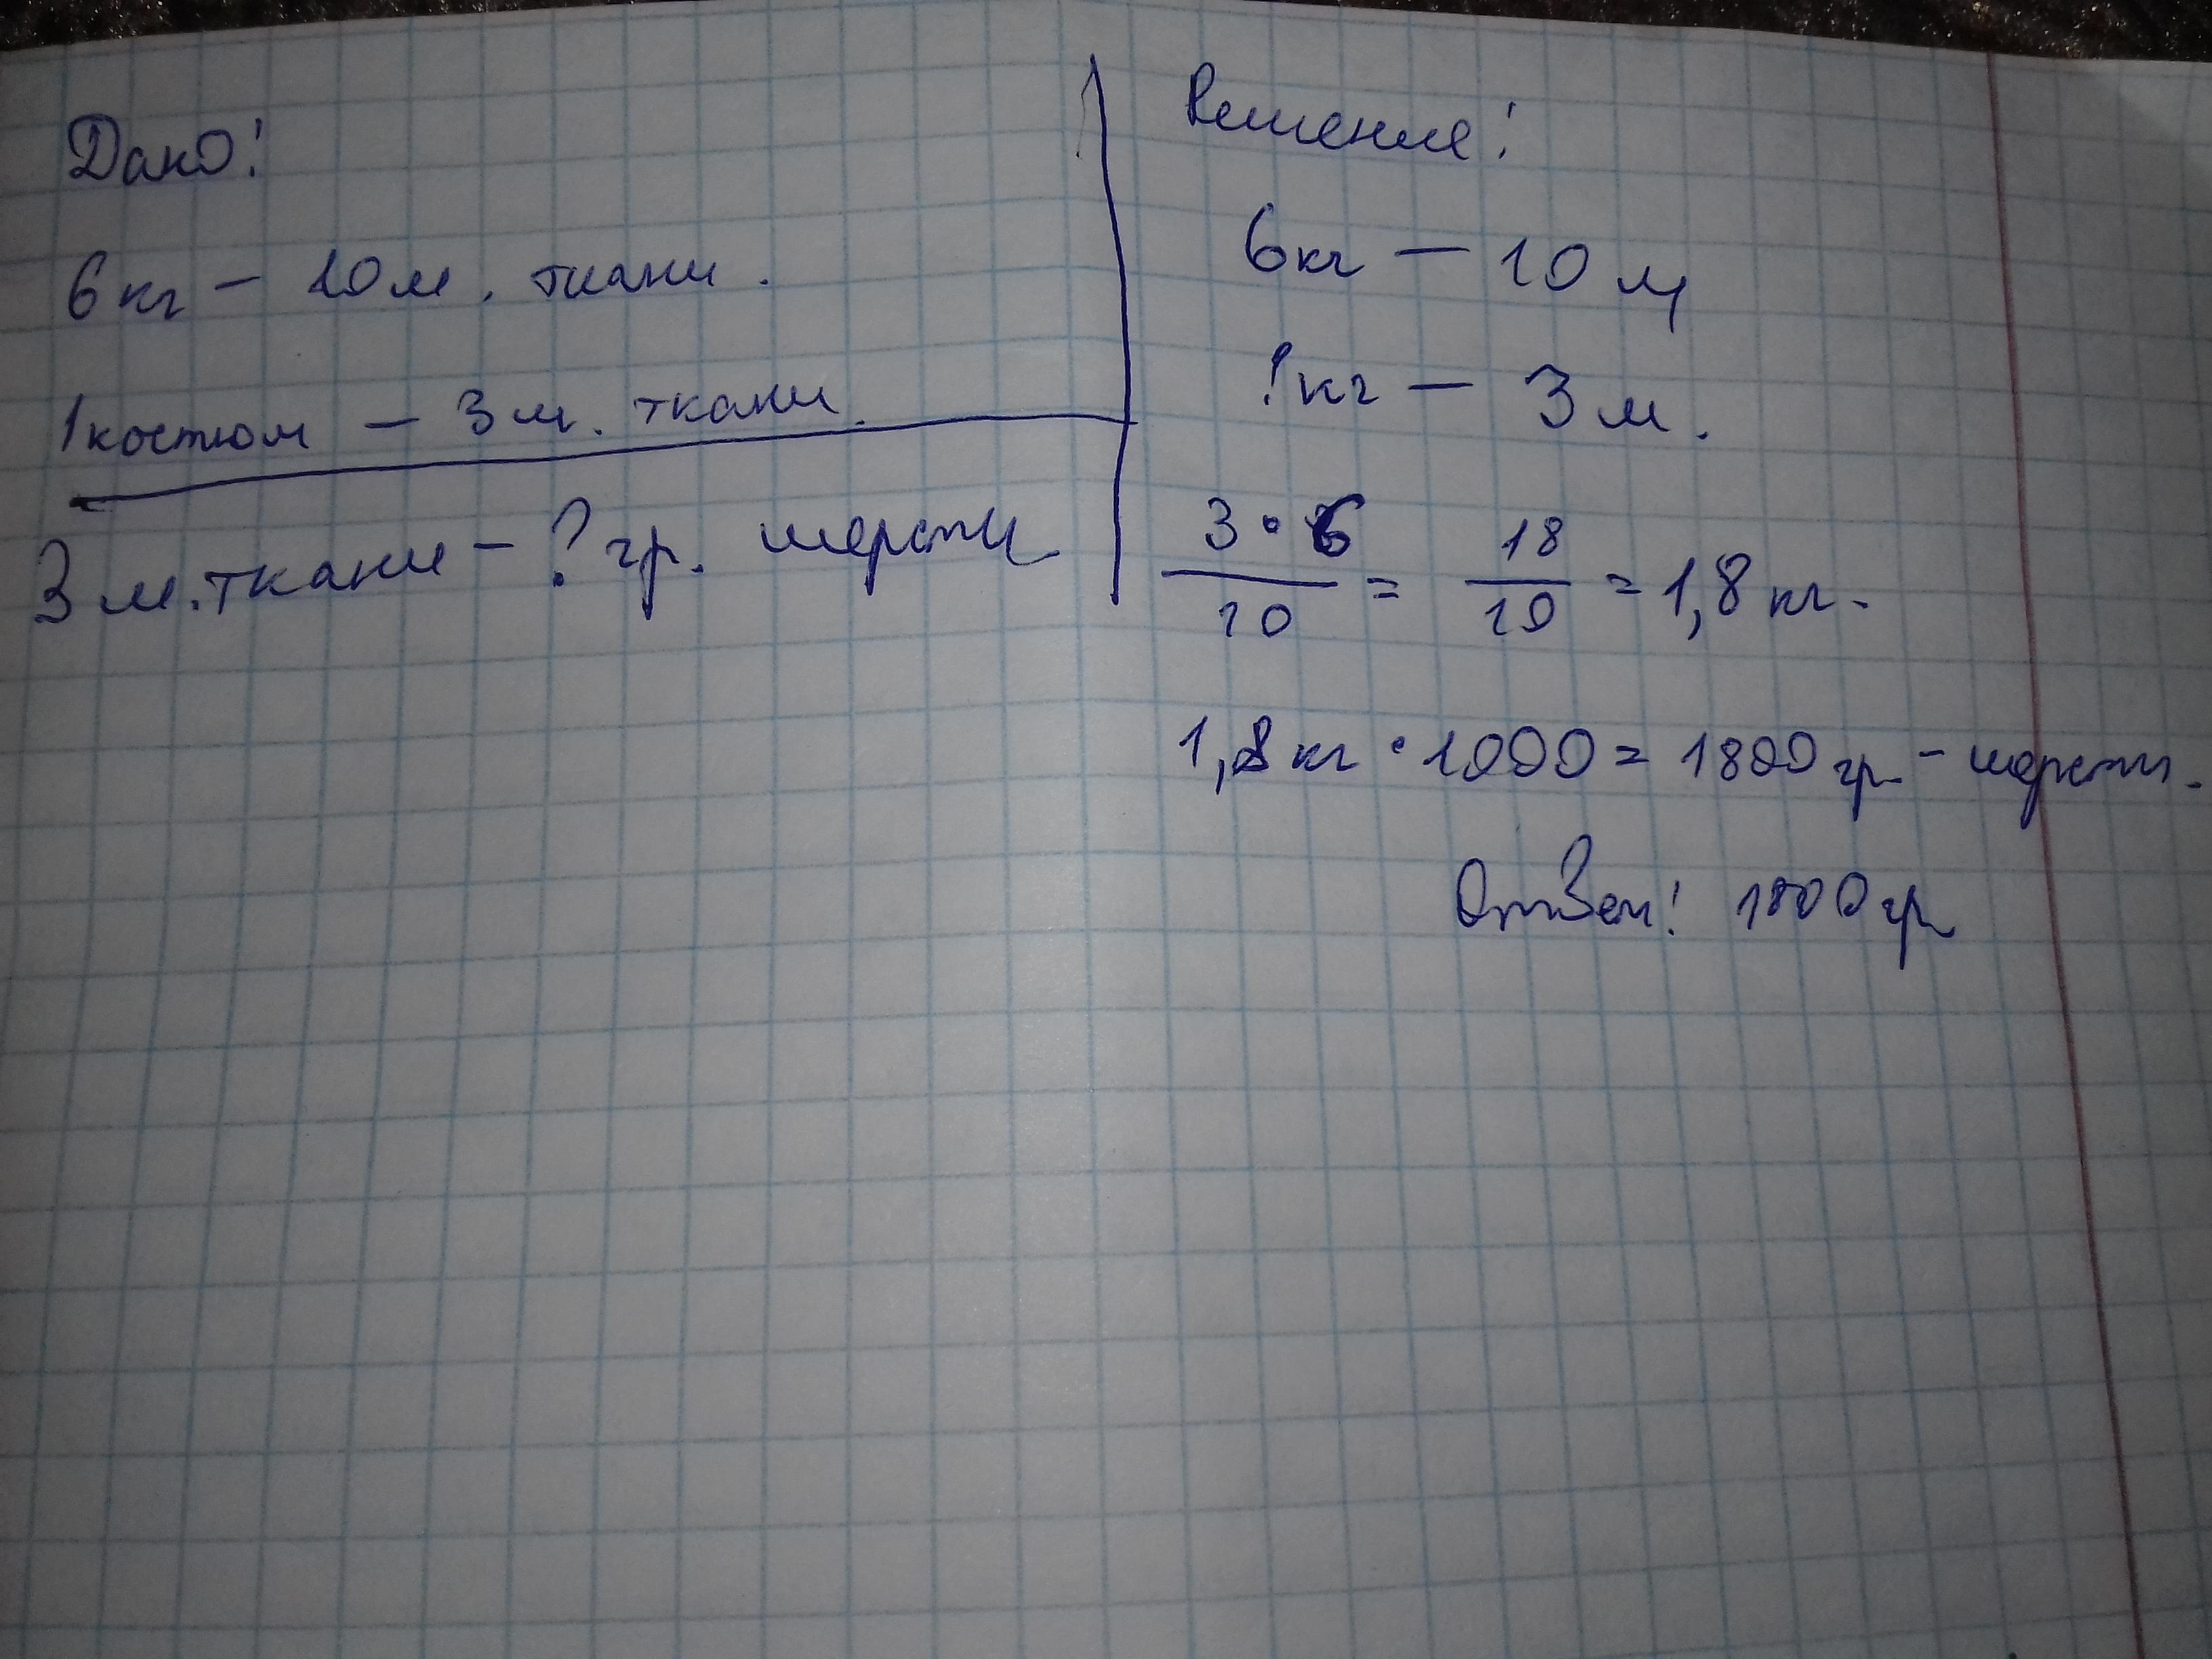 Дано:
6 кг – 10 м. ткани.
1 костюм – 3 м. ткани.
3 м. ткани – ? гр. шерсти
Решение:
6 кг – 10 м
? кг – 3 м.
3 • 6 / 10 = 18 / 10 = 1,8 кг.
1,8 кг • 1000 = 1800 гр – шерсти.
Ответ: 1800 гр